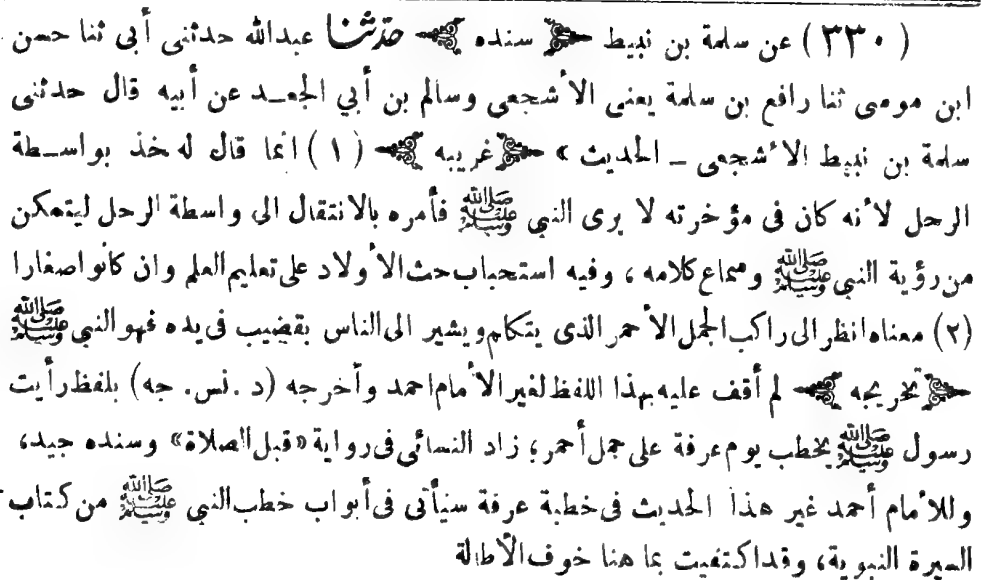 (٣٣٠) عن سلمة بن نبيط ﴿ سنده ﴾ حدّثنا عبدالله حدثنى أبى ثنا حسن
ابن موسى ثنا رافع بن سلمة يعنى الأشجعى وسالم بن أبي الجعـد عن أبيه قال حدثنى
سلمة بن نبيط الأشجعى ـ الحديث » ﴿ غريبه ﴾ (١) انما قال له خذ بواسـطة
الرحل لأنه كان فى مؤخرته لا يرى النبى ﷺ فأمره بالانتقال الى واسطة الرحل ليتمكن
من رؤية النبى ﷺ وسماع كلامه ، وفيه استحباب حث الأولاد على تعليم العلم وان كانوا صغارا
(٢) معناه انظر الى راكب الجمل الأحمر الذى يتكلم ويشير الى الناس بقضيب فى يده فهو النبى ﷺ
﴿ تخريجه ﴾ لم أقف عليه بهذا اللفظ لغير الأمام احمد وأخرجه (د . نس . جه) بلفظ رأيت
رسول ﷺ يخطب يوم عرفة على جمل أحمر ؛ زاد النسائى فى رواية «قبل الصلاة» وسنده جيد،
وللأمام أحمد غير هذا الحديث فى خطبة عرفة سيأتى فى أبواب خطب النبى ﷺ من كتاب
السيرة النبوية، وقد اكتفيت بما هنا خوف الأطالة